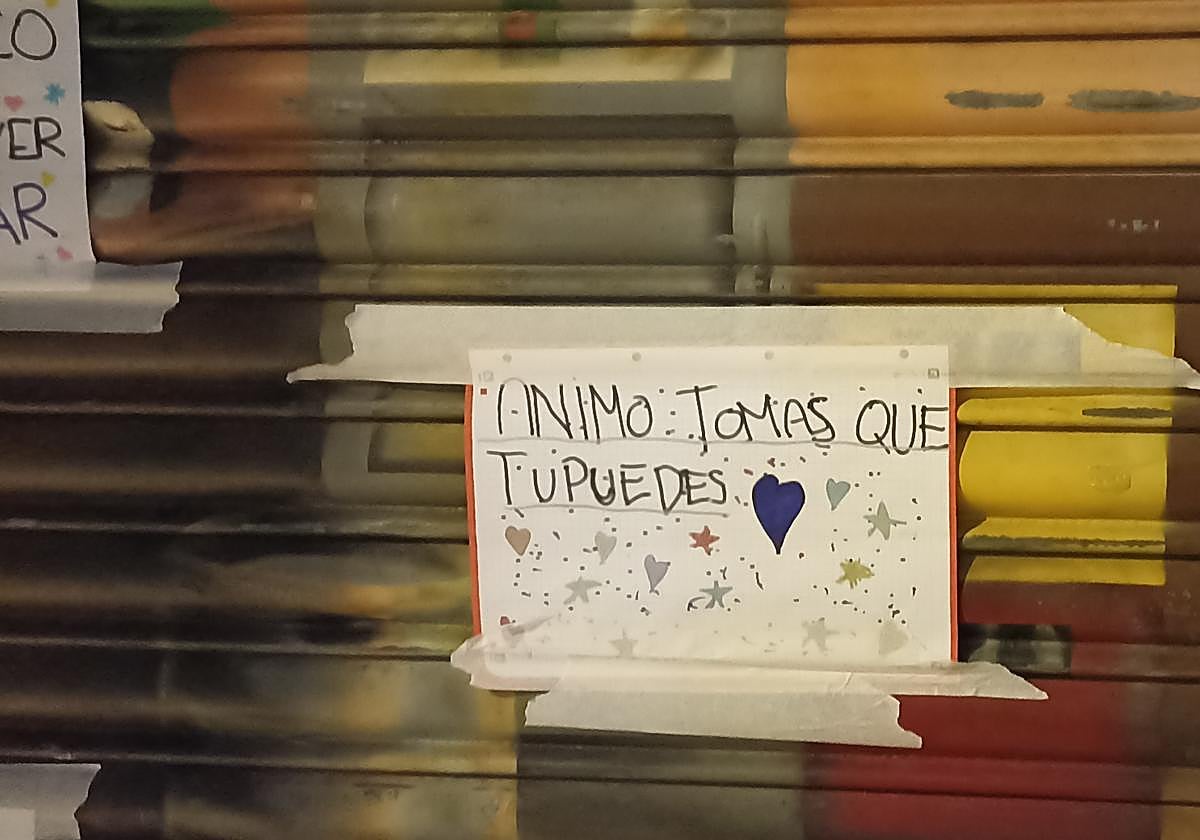 CO
VER
AR
ANIMO: TOMAS QUE
TUPUEDES